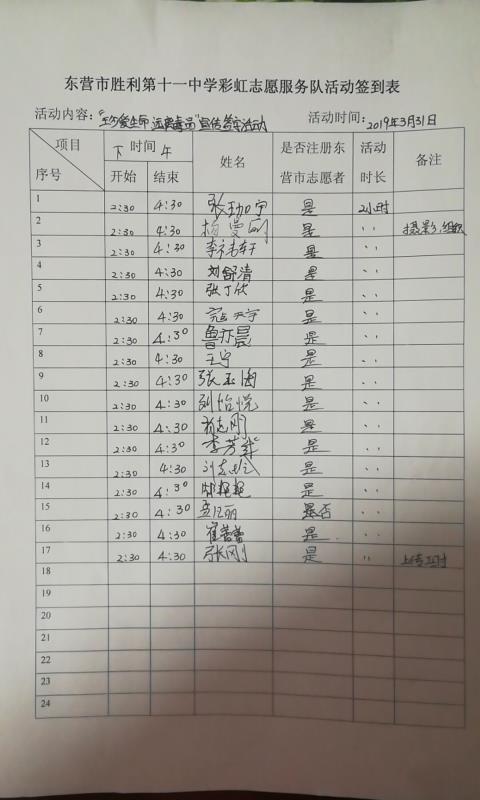 东营市胜利第十一中学彩虹志愿服务队活动签到表
活动内容：“珍爱生命 远离毒品”宣传签字活动 活动时间：2019年3月31日
项目 下 时间 午 姓名 是否注册东 活动 备注
序号 开始 结束 营市志愿者 时长
1 2:30 4:30 张珈宁 是 2小时
2 2:30 4:30 是 ‥ 摄影、组织
3 2:30 4:30 李祎轩 是 ‥
4 2:30 4:30 刘舒清 是 ‥
5 2:30 4:30 张丁欣 是 ‥
6 2:30 4:30 是 ‥
7 2:30 4:30 是 ‥
8 2:30 4:30 王宇 是 ‥
9 2:30 4:30 张玉海 是 ‥
10 2:30 4:30 刘怡悦 是 ‥
11 2:30 4:30 是 ‥
12 2:30 4:30 李芳 是 ‥
13 2:30 4:30 是 ‥
14 2:30 4:30 是 ‥
15 2:30 4:30 否 ‥
16 2:30 4:30 崔蕾蕾 是 ‥
17 2:30 4:30 张刚 是 ‥
18
19
20
21
22
23
24